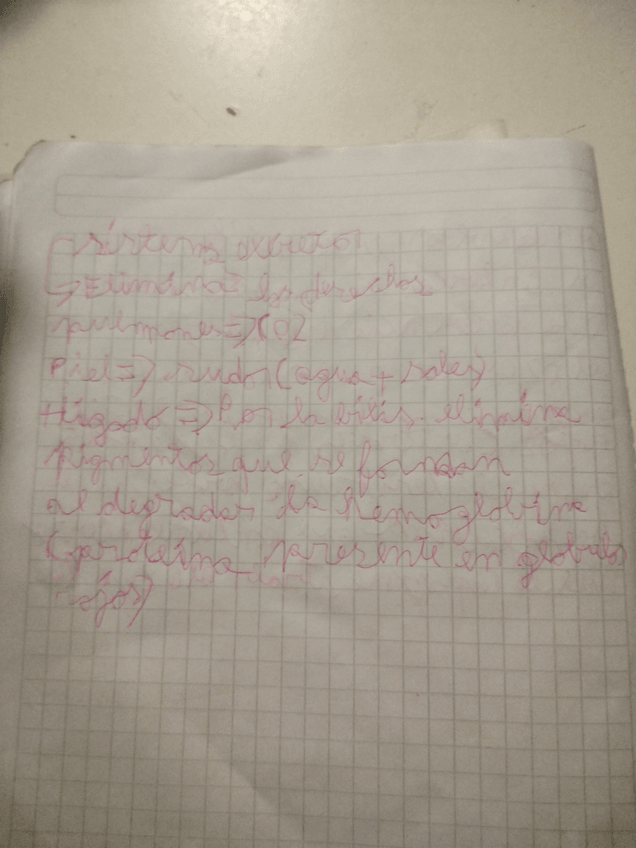 sistema excretor
→ Elimina los desechos
pulmones => CO2
Piel => sudor (agua + sales)
Hígado => Por la bilis. elimina
pigmentos que se forman
al degradar la hemoglobina
(proteína presente en globulos
rojos)